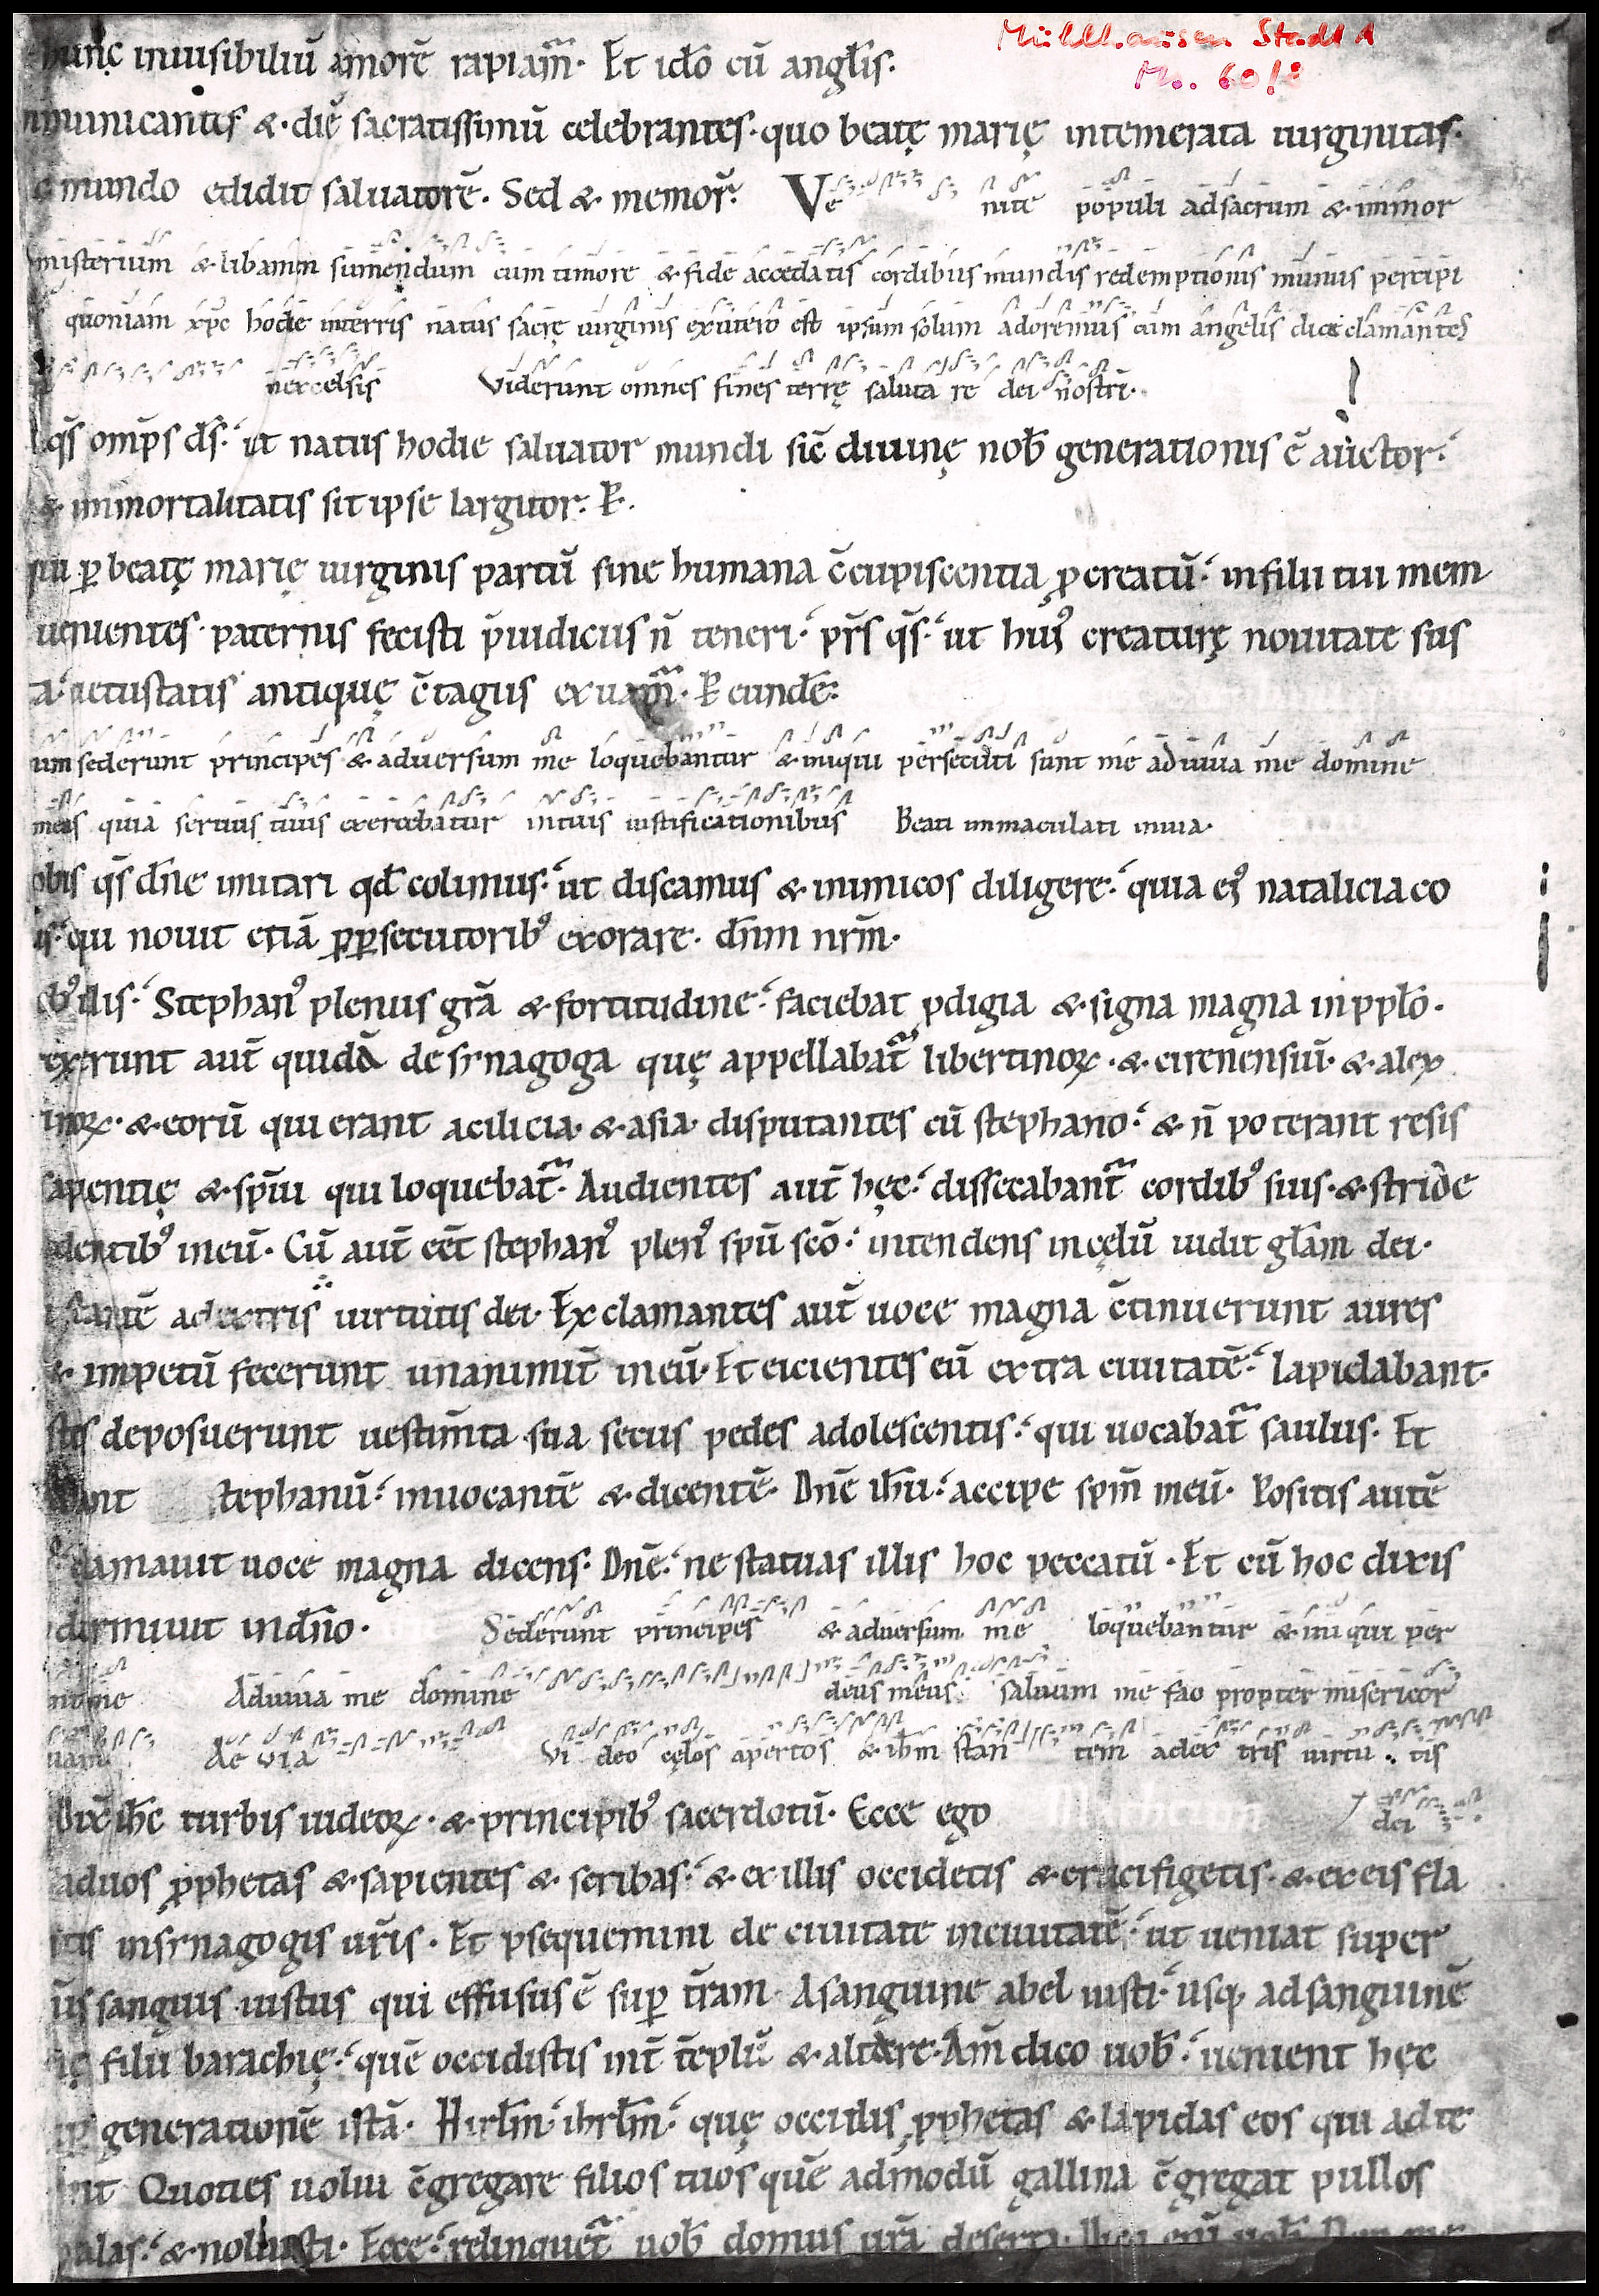 Mühlhausen Stadt A
60/8
hunc inuisibiliū amorē rapiam̄. Et ido͞ cū angl̄is.
municantes &. diē sacratissimū celebrantes. quo beatę marię intemerata uirginitas.
mundo edidit saluatorē. Sed &. memor̄. Ve nite populi ad sacrum &. inmor
misterium &. libamin sumendum cum timore & fide accedatis cordibus mundis redemptionis munus percipi
quoniam xp̄c hodie interris natus sacrę uirginis exutero est ipsum solum adoremus cum angelis dice clamantes
nexcelsis Viderunt omnes fines terrę saluta re dei nostri.
qs̄ omp̄s ds̄. ut natus hodie saluator mundi sic̄ diuinę nob̄ generationis ē auctor.
&. inmortalitatis sit ipse largitor. P.
ꝑ beatę marię uirginis partū sine humana c̄cupiscentia ꝓcreatū. infilii tui mem
uenientes. paternis fecisti p̄iudiciis n̄ teneri. pr̄s qs̄. ut huiꝰ creaturę nouitate sus
ta. uetustatis antiquę c̄tagiis exuam̄. P eundē.
um sederunt principes & aduersum me loquebantur & iniqui persecuti sunt me adiuua me domine
meus quia seruus tuus exercebatur intuis iustificationibus Beati inmaculati inuia.
obis qs̄ dn̄e imitari qd̄ colimus. ut discamus &. inimicos diligere. quia eiꝰ natalicia co
is. qui nouit etiā ꝓꝑsecutoribꝰ exorare. dn̄m nrm̄.
ebꝰ illis. Stephanꝰ plenus grā &. fortitudine. faciebat ꝓdigia &. signa magna inpplo͞.
exerunt aut̄ quidā de synagoga quę appellabat̄ libertinoꝝ. &. cirenensiū. &. alex
inoꝝ. &. eorū qui erant acilicia. &. asia. disputantes cū stephano. &. n̄ poterant resis
sapientię &. spūi qui loquebat̄. Audientes aut̄ hęc. dissecabant̄ cordibꝰ suis. &. stride
dentibꝰ ineū. Cū aut̄ eēt stephanꝰ plenꝰ spū scō. intendens incęlū uidit gl̄am dei.
stantē adextris uirtutis dei. Exclamantes aut̄ uoce magna c̄tinuerunt aures
&. impetū fecerunt unanimit̄ ineū. Et eicientes eū extra ciuitatē. lapidabant.
stes deposuerunt uestim̄ta sua secus pedes adolescentis. qui uocabat̄ saulus. Et
bant tephanū. inuocantē &. dicentē. Dnē ih̄u. accipe spm̄ meū. Positis autē
clamauit uoce magna dicens. Dnē. ne statuas illis hoc peccatū. Et cū hoc dixis
dormiuit indn̄o. Sederunt principes & aduersum me loquebantur & iniqui per
nt me Adiuua me domine deus meus saluum me fac propter misericor
uam. Ae via Vi deo cęlos apertos & ih̄m stan tem adex tris uirtu tis
Dix̄ ih̄c turbis iudeoꝝ. &. principibꝰ sacerdotū. Ecce ego dei
aduos ꝓphetas &. sapientes &. scribas. &. ex illis occidetis &. crucifigetis. &. ex eis fla
itis insynagogis ur̄is. Et ꝑsequemini de ciuitate inciuitatē. ut ueniat super
ūs sanguis iustus qui effusus ē suꝑ t̄ram. Asanguine abel iusti. usqꝫ adsanguinē
ię filii barachię. quē occidistis int̄ tēplū &. altare. Am̄ dico uob̄. uenient hęc
generationē istā. Hirl̄m. ihrl̄m. quę occidis ꝓphetas &. lapidas eos qui adte
nt Quoties uolui c̄gregare filios tuos quē admodū gallina c̄gregat pullos
alas. &. noluisti. Ecce. relinquet̄ uob̄ domus urā deserta.